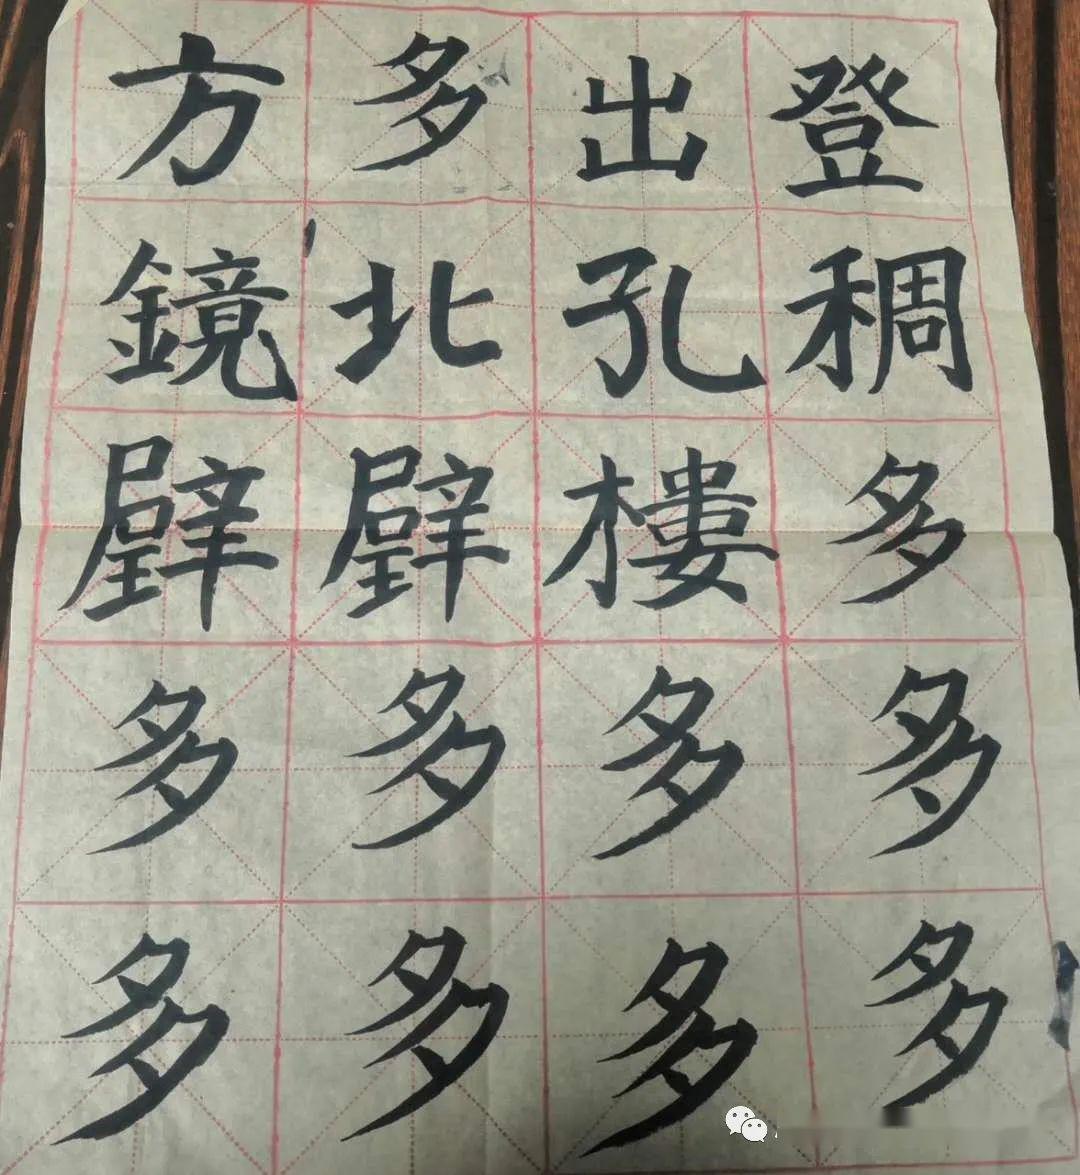 方多出登
鏡北孔稠
壁壁樓多
多多多多
多多多多